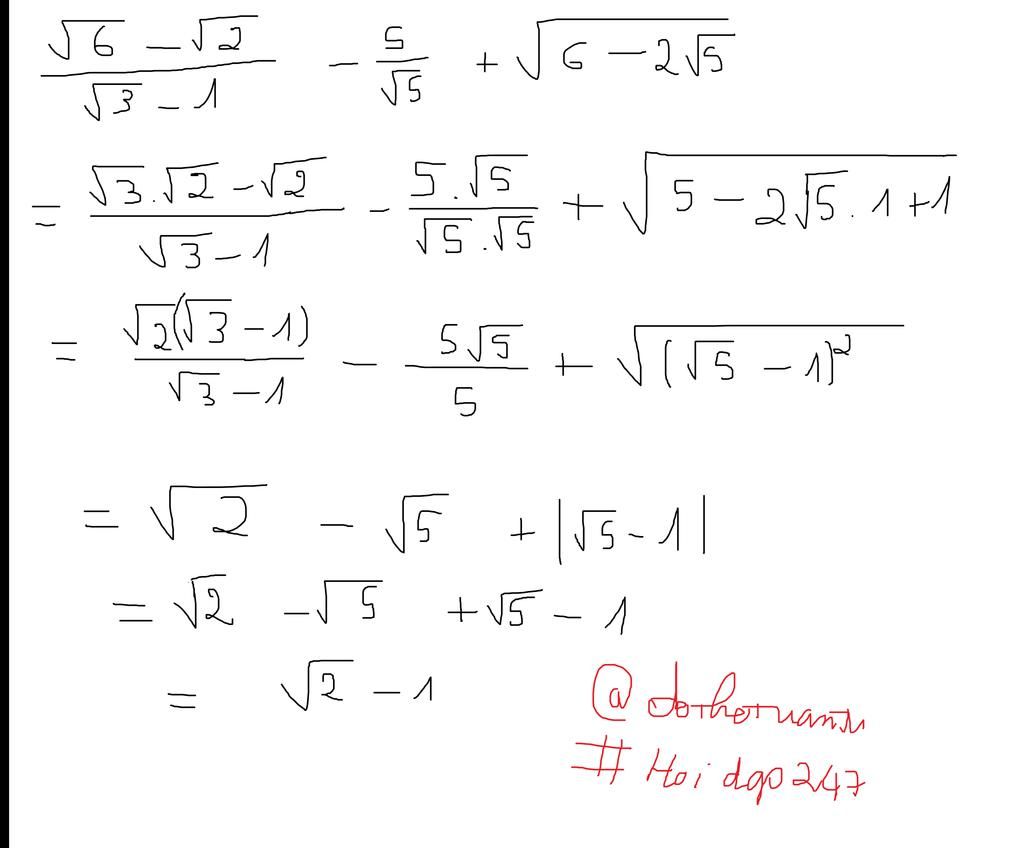 (√6 − √2)/(√3 − 1) − 5/√5 + √(6 − 2√5)
= (√3.√2 − √2)/(√3 − 1) − (5.√5)/(√5.√5) + √(5 − 2√5.1 + 1)
= (√2(√3 − 1))/(√3 − 1) − (5√5)/5 + √((√5 − 1)²)
= √2 − √5 + |√5 − 1|
= √2 − √5 + √5 − 1
= √2 − 1
@
# Hoidap247